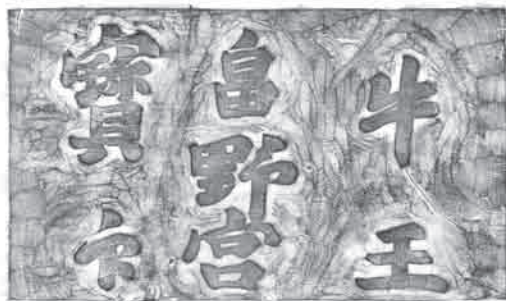 牛王
畠野宮
寳印